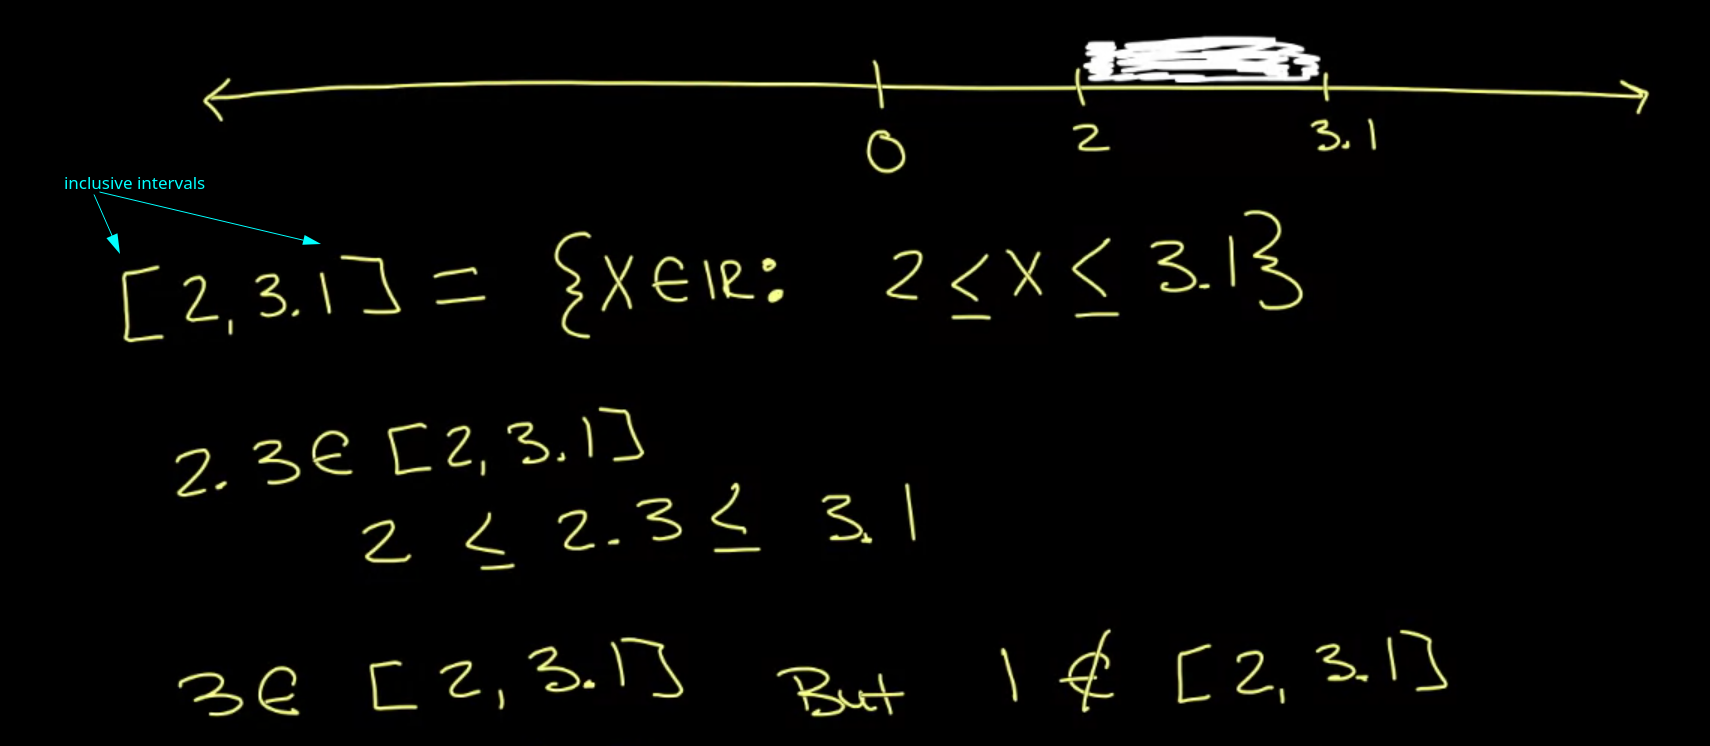 0 2 3.1
inclusive intervals
[2, 3.1] = {x∈ℝ: 2 ≤ x ≤ 3.1}
2.3 ∈ [2, 3.1]
2 ≤ 2.3 ≤ 3.1
3 ∈ [2, 3.1] But 1 ∉ [2, 3.1]